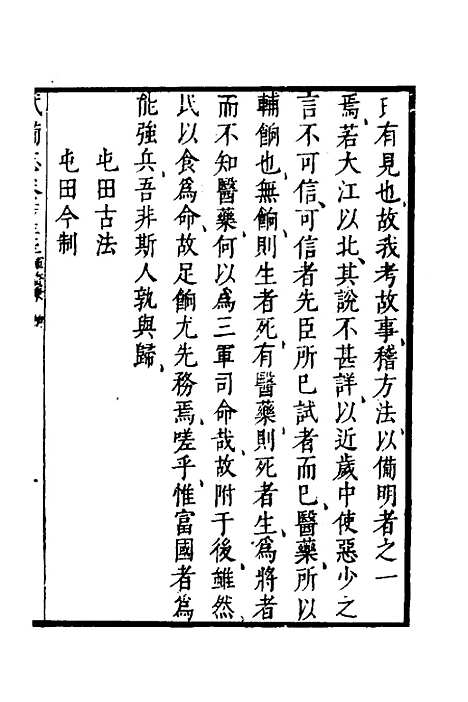 有見也故我考故事稽方法以備明者之一
焉若大江以北其說不甚詳以近歲中使惡少之
言不可信可信者先臣所已試者而已醫藥所以
輔餉也無餉則生者死有醫藥則死者生為將者
而不知醫藥何以為三軍司命哉故附于後雖然
民以食為命故足餉尤先務焉嗟乎惟富國者為
能強兵吾非斯人孰與歸
屯田古法
屯田今制
武備志卷